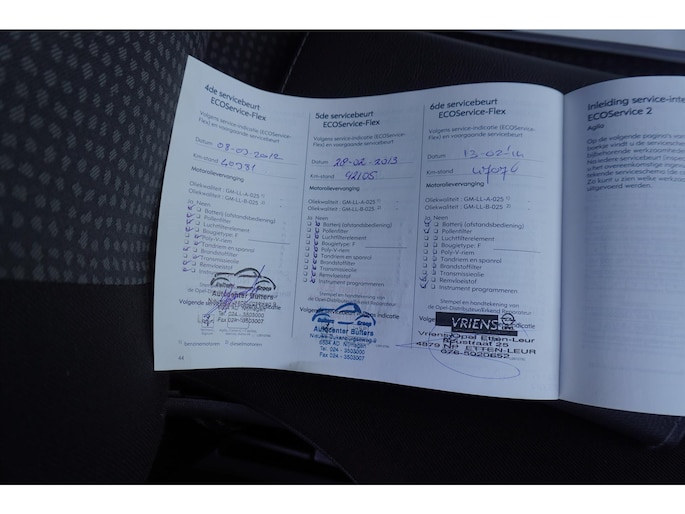 4de servicebeurt
ECOService-Flex
Volgens service-indicatie (ECOService-
Flex) en voorgaande servicebeurt
Datum 08-03-2012
Km-stand 40981
Motorolievervanging
Oliekwaliteit : GM-LL-A-025 1)
Oliekwaliteit : GM-LL-B-025 2)
Ja Neen
Batterij (afstandsbediening)
Pollenfilter
Luchtfilterelement
Bougietype: F
Poly-V-riem
Tandriem en spanrol
Brandstoffilter
Transmissieolie
Remvloeistof
Instrument
Autocenter Butters
Tel. 024 - 3503000
Fax 024 - 3503007
44
1) Benzinemotoren 2) dieselmotoren
5de servicebeurt
ECOService-Flex
Volgens service-indicatie (ECOService-
Flex) en voorgaande servicebeurt
Datum 28-02-2013
Km-stand 42105
Motorolievervanging
Oliekwaliteit : GM-LL-A-025 1)
Oliekwaliteit : GM-LL-B-025 2)
Ja Neen
Batterij (afstandsbediening)
Pollenfilter
Luchtfilterelement
Bougietype: F
Poly-V-riem
Tandriem en spanrol
Brandstoffilter
Transmissieolie
Remvloeistof
Instrument programmeren
Stempel en handtekening van
de Opel-Distributeur/Erkend Reparateur
Autocenter Butters
Tel. 024 - 3503000
Fax 024 - 3503007
6de servicebeurt
ECOService-Flex
Volgens service-indicatie (ECOService-
Flex) en voorgaande servicebeurt
Datum 13-02-'14
Km-stand
Motorolievervanging
Oliekwaliteit : GM-LL-A-025 1)
Oliekwaliteit : GM-LL-B-025 2)
Ja Neen
Batterij (afstandsbediening)
Pollenfilter
Luchtfilterelement
Bougietype: F
Poly-V-riem
Tandriem en spanrol
Brandstoffilter
Transmissieolie
Remvloeistof
Instrument programmeren
Stempel en handtekening van
de Opel-Distributeur/Erkend Reparateur
VRIENS
Vriens Opel Etten-Leur
4879 NP ETTEN-LEUR
076-5020652
Inleiding service-inte
ECOService 2
Agila
Op de volgende pagina's va
boekje vindt u de serviceschem
bijbehorende werkzaamheden
iedere servicebeurt (inspect
u met overeenkomstige inspe
volgende serviceschema (de c
Zo kunt u zien welke werkzaa
uitgevoerd werden.